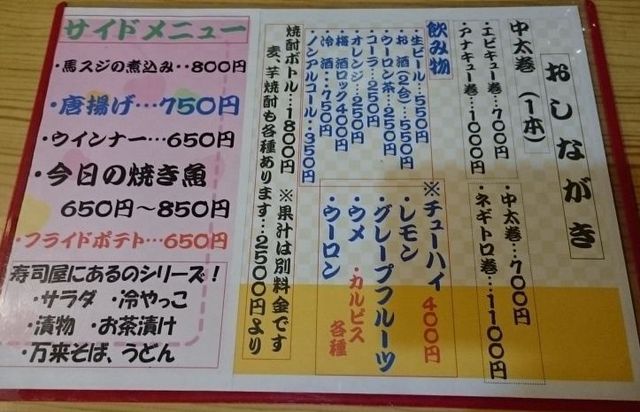 おしながき
中太巻（1本）
・エビキュー巻…700円
・アナキュー巻…1000円
・中太巻…700円
・ネギトロ巻…1100円
飲み物
・生ビール…550円
・お酒（2合）…550円
・ウーロン茶…250円
・コーラ…250円
・オレンジ…250円
・梅酒ロック400円
・冷酒…750円
・ノンアルコール・350円
※チューハイ400円
・レモン
・グレープフルーツ
・ウメ
・カルピス各種
・ウーロン
※果汁は別料金です
焼酎ボトル…1800円
麦、芋焼酎も各種あります…2500円より
サイドメニュー
・馬スジの煮込み…800円
・唐揚げ…750円
・ウインナー…650円
・今日の焼き魚
650円〜850円
・フライドポテト…650円
寿司屋にあるのシリーズ！
・サラダ ・冷やっこ
・漬物 ・お茶漬け
・万来そば、うどん